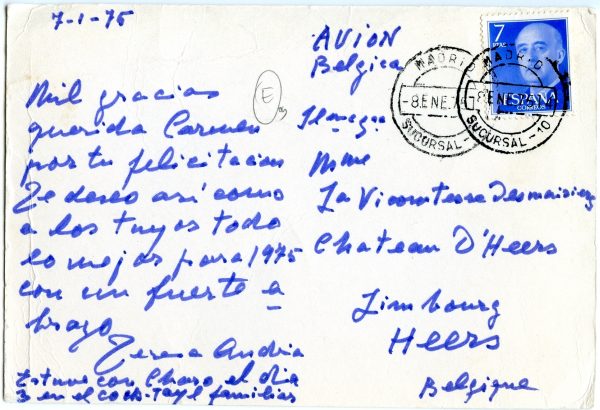 7-1-75
Mil gracias
querida Carmen
por tu felicitacion
Te deseo así como
a los tuyos todo
lo mejor para 1975
con un fuerte a-
brazo
Teresa Andria
Estuve con Charo el dia
3 en el cock-tayl familias
E
AVION
Belgica
Mme
La Vicomtesse Desmaisieres
Chateau D'Heers
Limbourg
Heers
Belgique
7
PTAS
ESPAÑA
CORREOS
MADRID
-8.ENE.7
SUCURSAL-
MADRID
-8.ENE.7
SUCURSAL-10